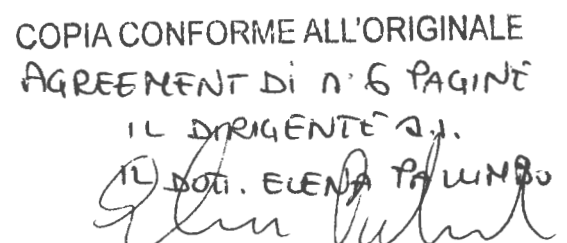 COPIA CONFORME ALL'ORIGINALE
AGREEMENT Di n° 6 PAGINE
IL DIRIGENTE a.i.
IL DOTT. ELENA PALUMBO